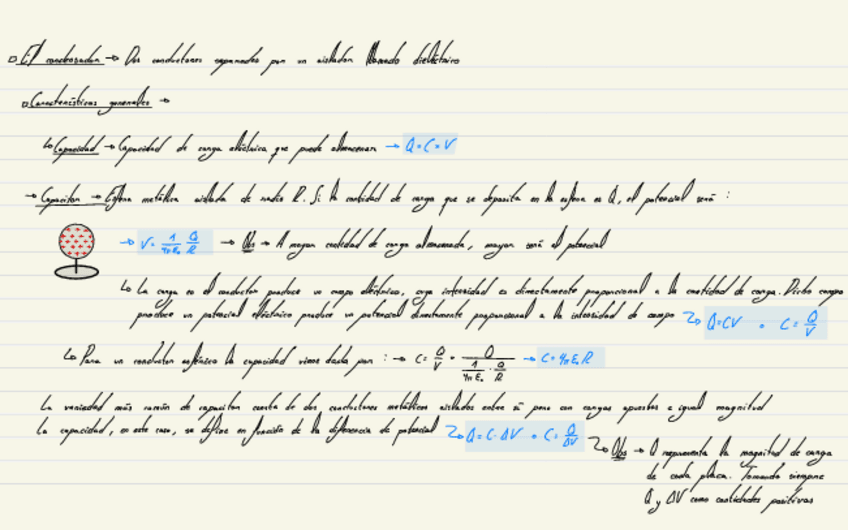 El condensador → Dos conductores separados por un aislador llamado dieléctrico
Características generales →
↳ Capacidad → Capacidad de carga eléctrica que puede almacenar → Q = C × V
→ Capacitor → Esfera metálica aislada de radio R. Si la cantidad de carga que se deposita en la esfera es Q, el potencial será :
→ V = 1/4πε₀ Q/R → Obs → A mayor cantidad de carga almacenada, mayor será el potencial
↳ La carga en el conductor produce un campo eléctrico, cuya intensidad es directamente proporcional a la cantidad de carga. Dicho campo
produce un potencial eléctrico produce un potencial directamente proporcional a la intensidad de campo → Q = CV o C = Q/V
↳ Para un conductor esférico la capacidad viene dada por : → C = Q/V = Q/(1/4πε₀ · Q/R) → C = 4πε₀R
La variedad más común de capacitor consta de dos conductores metálicos aislados entre sí pero con cargas opuestas e igual magnitud
La capacidad, en este caso, se define en función de la diferencia de potencial → Q = C · ΔV o C = Q/ΔV
→ Obs → Q representa la magnitud de carga
de cada placa. Tomando siempre
Q y ΔV como cantidades positivas